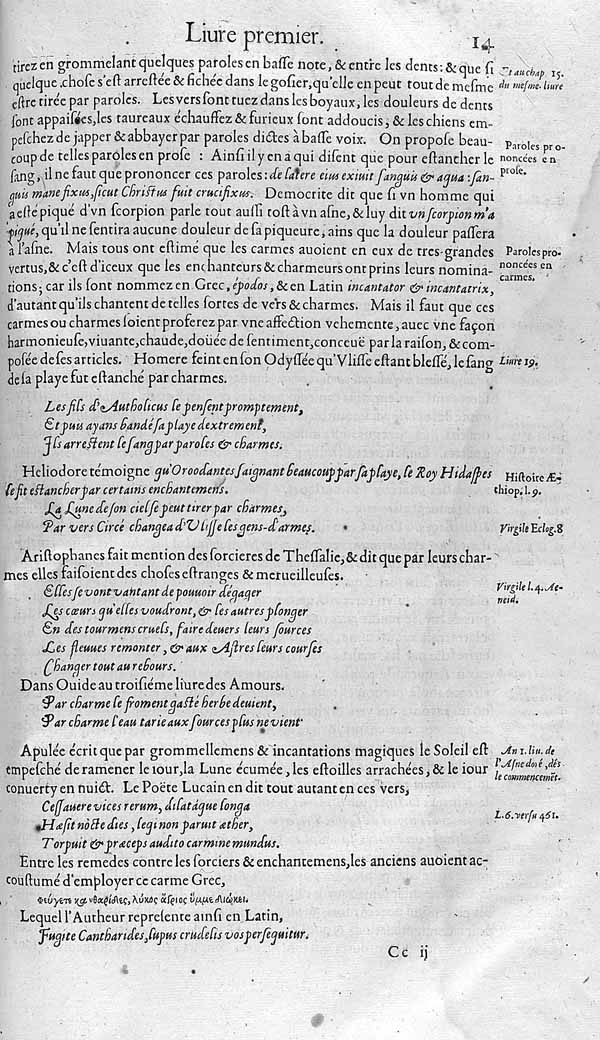 Liure premier.
14
tirez en grommelant quelques paroles en basse note, & entre les dents: & que si
quelque chose s'est arrestée & fichée dans le gosier, qu'elle en peut tout de mesme
estre tirée par paroles. Les vers sont tuez dans les boyaux, les douleurs de dents
sont appaisées, les taureaux échauffez & furieux sont addoucis, & les chiens em-
peschez de japper & abbayer par paroles dictes à basse voix. On propose beau-
coup de telles paroles en prose : Ainsi il y en a qui disent que pour estancher le
sang, il ne faut que prononcer ces paroles: de latere eius exiuit sanguis & aqua: san-
guis mane fixus, sicut Christus fuit crucifixus. Democrite dit que si vn homme qui
a esté piqué d'vn scorpion parle tout aussi tost à vn asne, & luy dit vn scorpion m'a
piqué, qu'il ne sentira aucune douleur de sa piqueure, ains que la douleur passera
à l'asne. Mais tous ont estimé que les carmes auoient en eux de tres-grandes
vertus, & c'est d'iceux que les enchanteurs & charmeurs ont prins leurs nomina-
tions; car ils sont nommez en Grec, épodos, & en Latin incantator & incantatrix,
d'autant qu'ils chantent de telles sortes de vers & charmes. Mais il faut que ces
carmes ou charmes soient proferez par vne affection vehemente, auec vne façon
harmonieuse, viuante, chaude, doüée de sentiment, conceuë par la raison, & com-
posée de ses articles. Homere feint en son Odyssée qu'Vlisse estant blessé, le sang
de sa playe fut estanché par charmes.
Les fils d'Autholicus le pensent promptement,
Et puis ayans bandé sa playe dextrement,
Ils arrestent le sang par paroles & charmes.
Heliodore témoigne qu'Oroodantes saignant beaucoup par sa playe, le Roy Hidaspes
le fit estancher par certains enchantemens.
La Lune de son ciel se peut tirer par charmes,
Par vers Circé changea d'Vlisse les gens-d'armes.
Aristophanes fait mention des sorcieres de Thessalie, & dit que par leurs char-
mes elles faisoient des choses estranges & merueilleuses.
Elles se vont vantant de pouuoir dégager
Les cœurs qu'elles voudront, & les autres plonger
En des tourmens cruels, faire deuers leurs sources
Les fleuues remonter, & aux Astres leurs courses
Changer tout au rebours.
Dans Ouide au troisiéme liure des Amours.
Par charme le froment gasté herbe deuient,
Par charme l'eau tarie aux sources plus ne vient
Apulée écrit que par grommellemens & incantations magiques le Soleil est
empesché de ramener le iour, la Lune écumée, les estoilles arrachées, & le iour
conuerty en nuict. Le Poëte Lucain en dit tout autant en ces vers,
Cessauere vices rerum, dilatáque longa
Hæsit nocte dies, legi non paruit æther,
Torpuit & præceps audito carmine mundus.
Entre les remedes contre les sorciers & enchantemens, les anciens auoient ac-
coustumé d'employer ce carme Grec,
Φεύγετε κανθαρίδες, λύκος ἄγριος ὔμμε διώκει.
Lequel l'Autheur represente ainsi en Latin,
Fugite Cantharides, lupus crudelis vos persequitur.
Cc ij
Et au chap 15.
du mesme liure
Paroles pro-
noncées en
prose.
Paroles pro-
noncées en
carmes.
Liure 19.
Histoire Æ-
thiop. l. 9.
Virgile Eclog. 8
Virgile l. 4. Ae-
neid.
An 1. liu. de
l'Asne doré, dés
le commencemēt.
L. 6. versu 461.